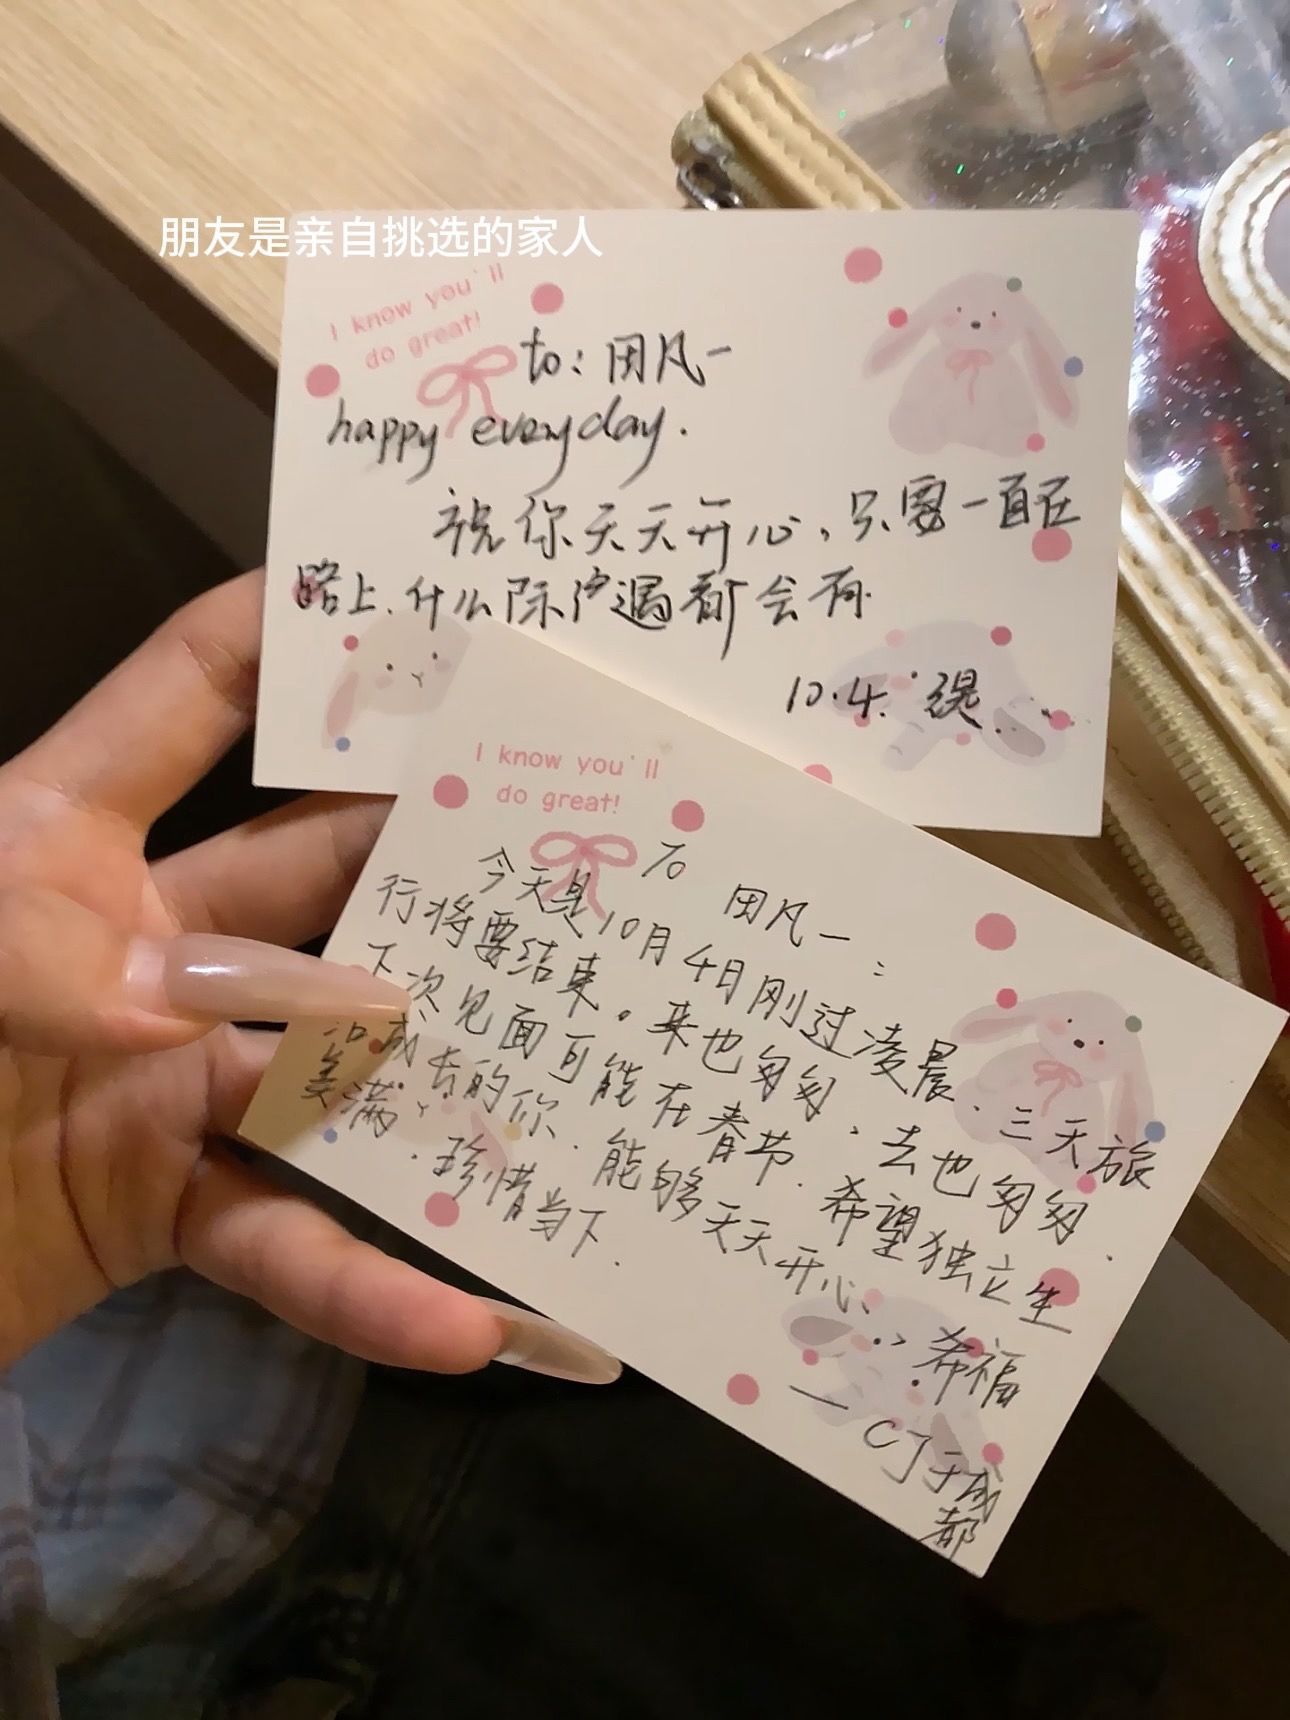 朋友是亲自挑选的家人
I know you'll
do great!
to: 田凡一
happy everyday.
祝你天天开心,只要一直在
路上.什么际遇都会有.
10.4.
I know you'll
do great!
To 田凡一:
今天是10月4日刚过凌晨.三天旅
行将要结束。来也匆匆,去也匆匆.
下次见面可能在春节.希望独立生
活过去的你.能够天天开心、幸福
美满.珍惜当下.
—CJ于成
都